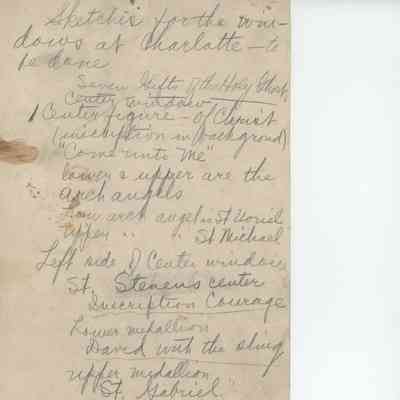 Sketches for the win-
dows at Charlotte – to
be done
Seven Gifts of the Holy Ghost,
Center window
1 Center figure – of Christ
(inscription in background)
"Come unto Me"
lower & upper are the
arch angels
Low arch angel is St Uoriel
upper " " St Michael
Left side of Center window
St. Stevens center
Inscription Courage
Lower medallion
David with the sling
upper medallion
"St. Gabriel"